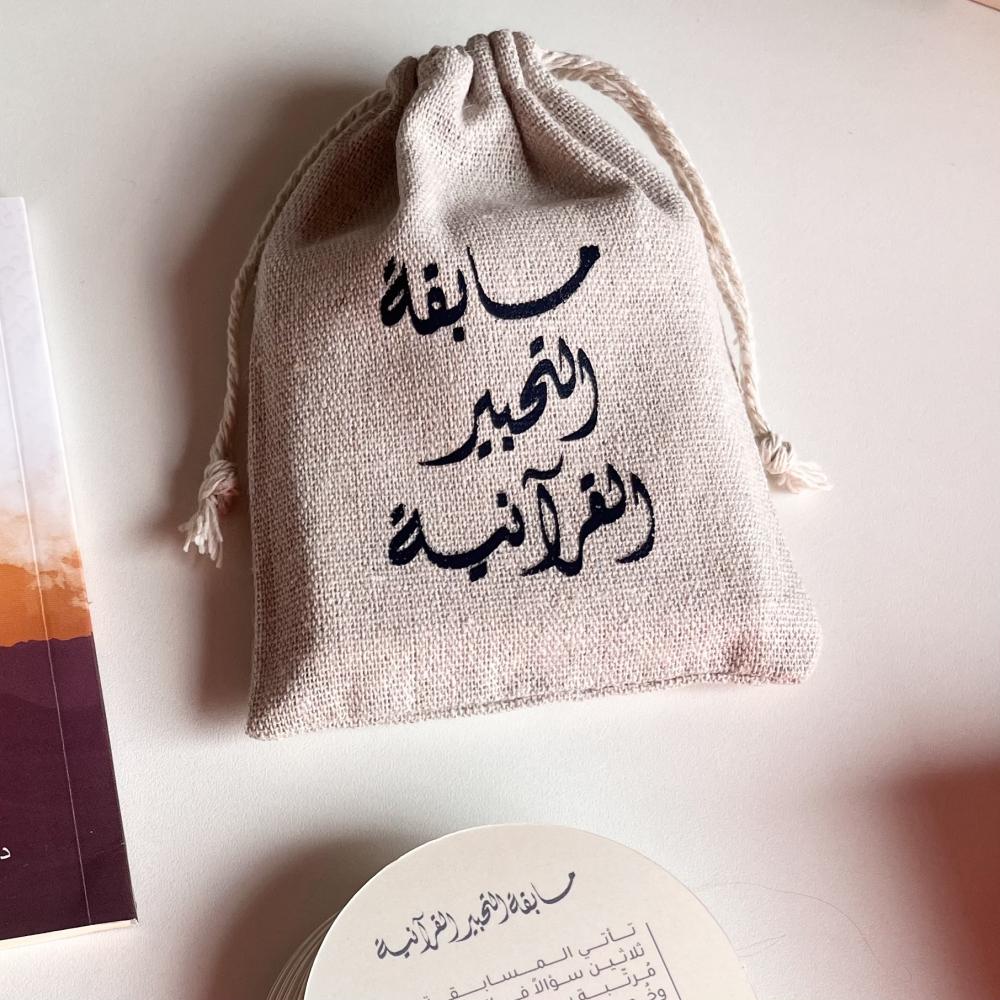 مسابقة
التحبير
القرآنية
مسابقة التحبير القرآنية
تأتي المسابقة
ثلاثين سؤالاً
مُرتّبة